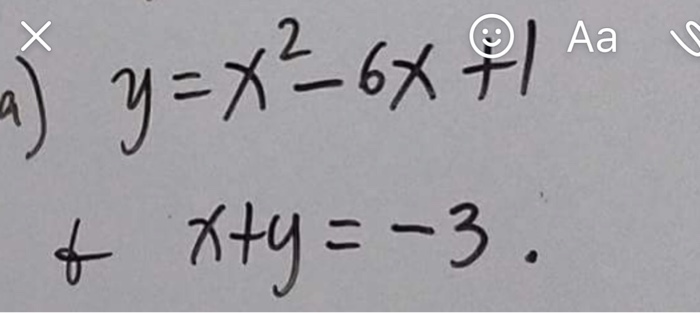 Aa
a) y = x² - 6x + 1
& x + y = -3.